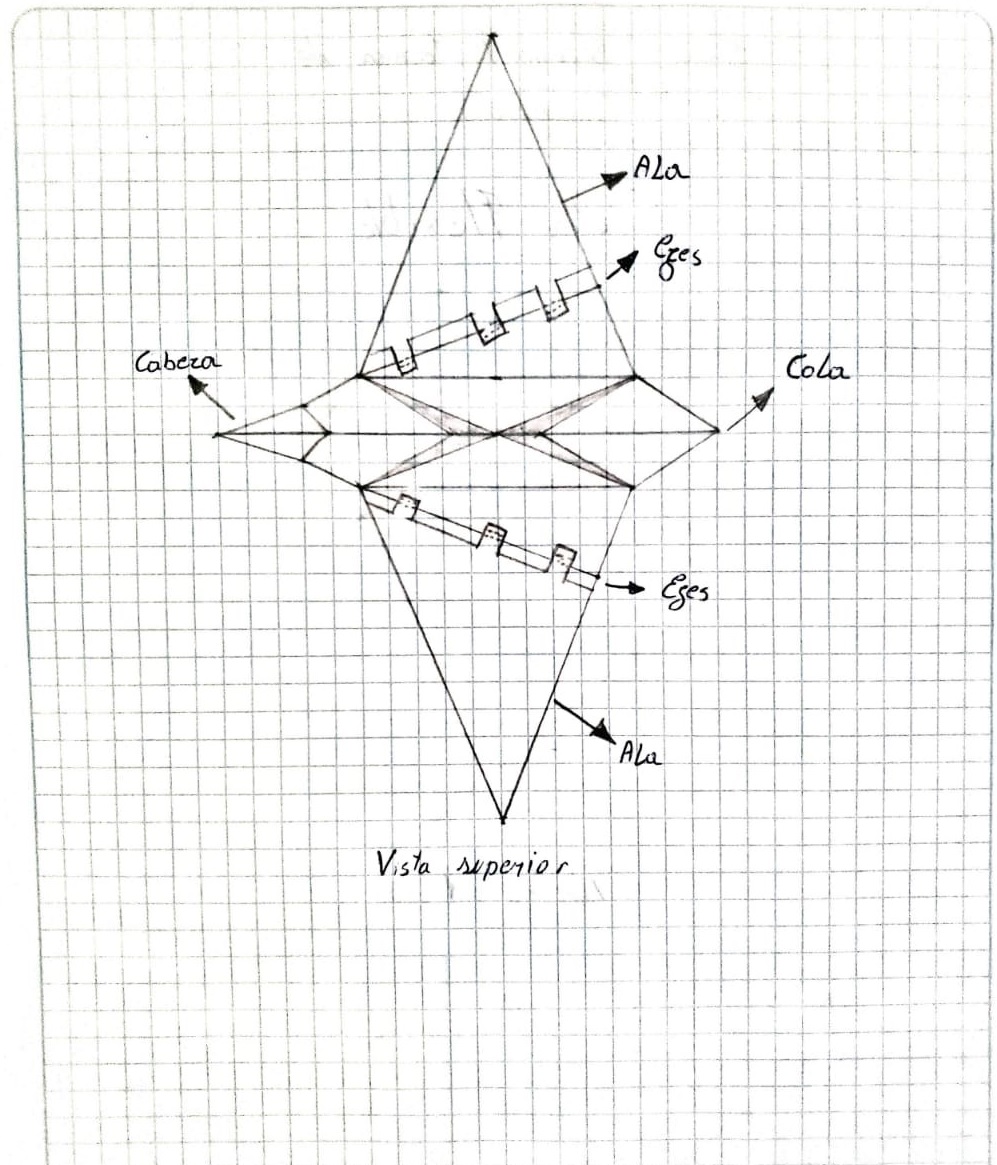 Ala
Eges
Cabeza
Cola
Eges
Ala
Vista superior